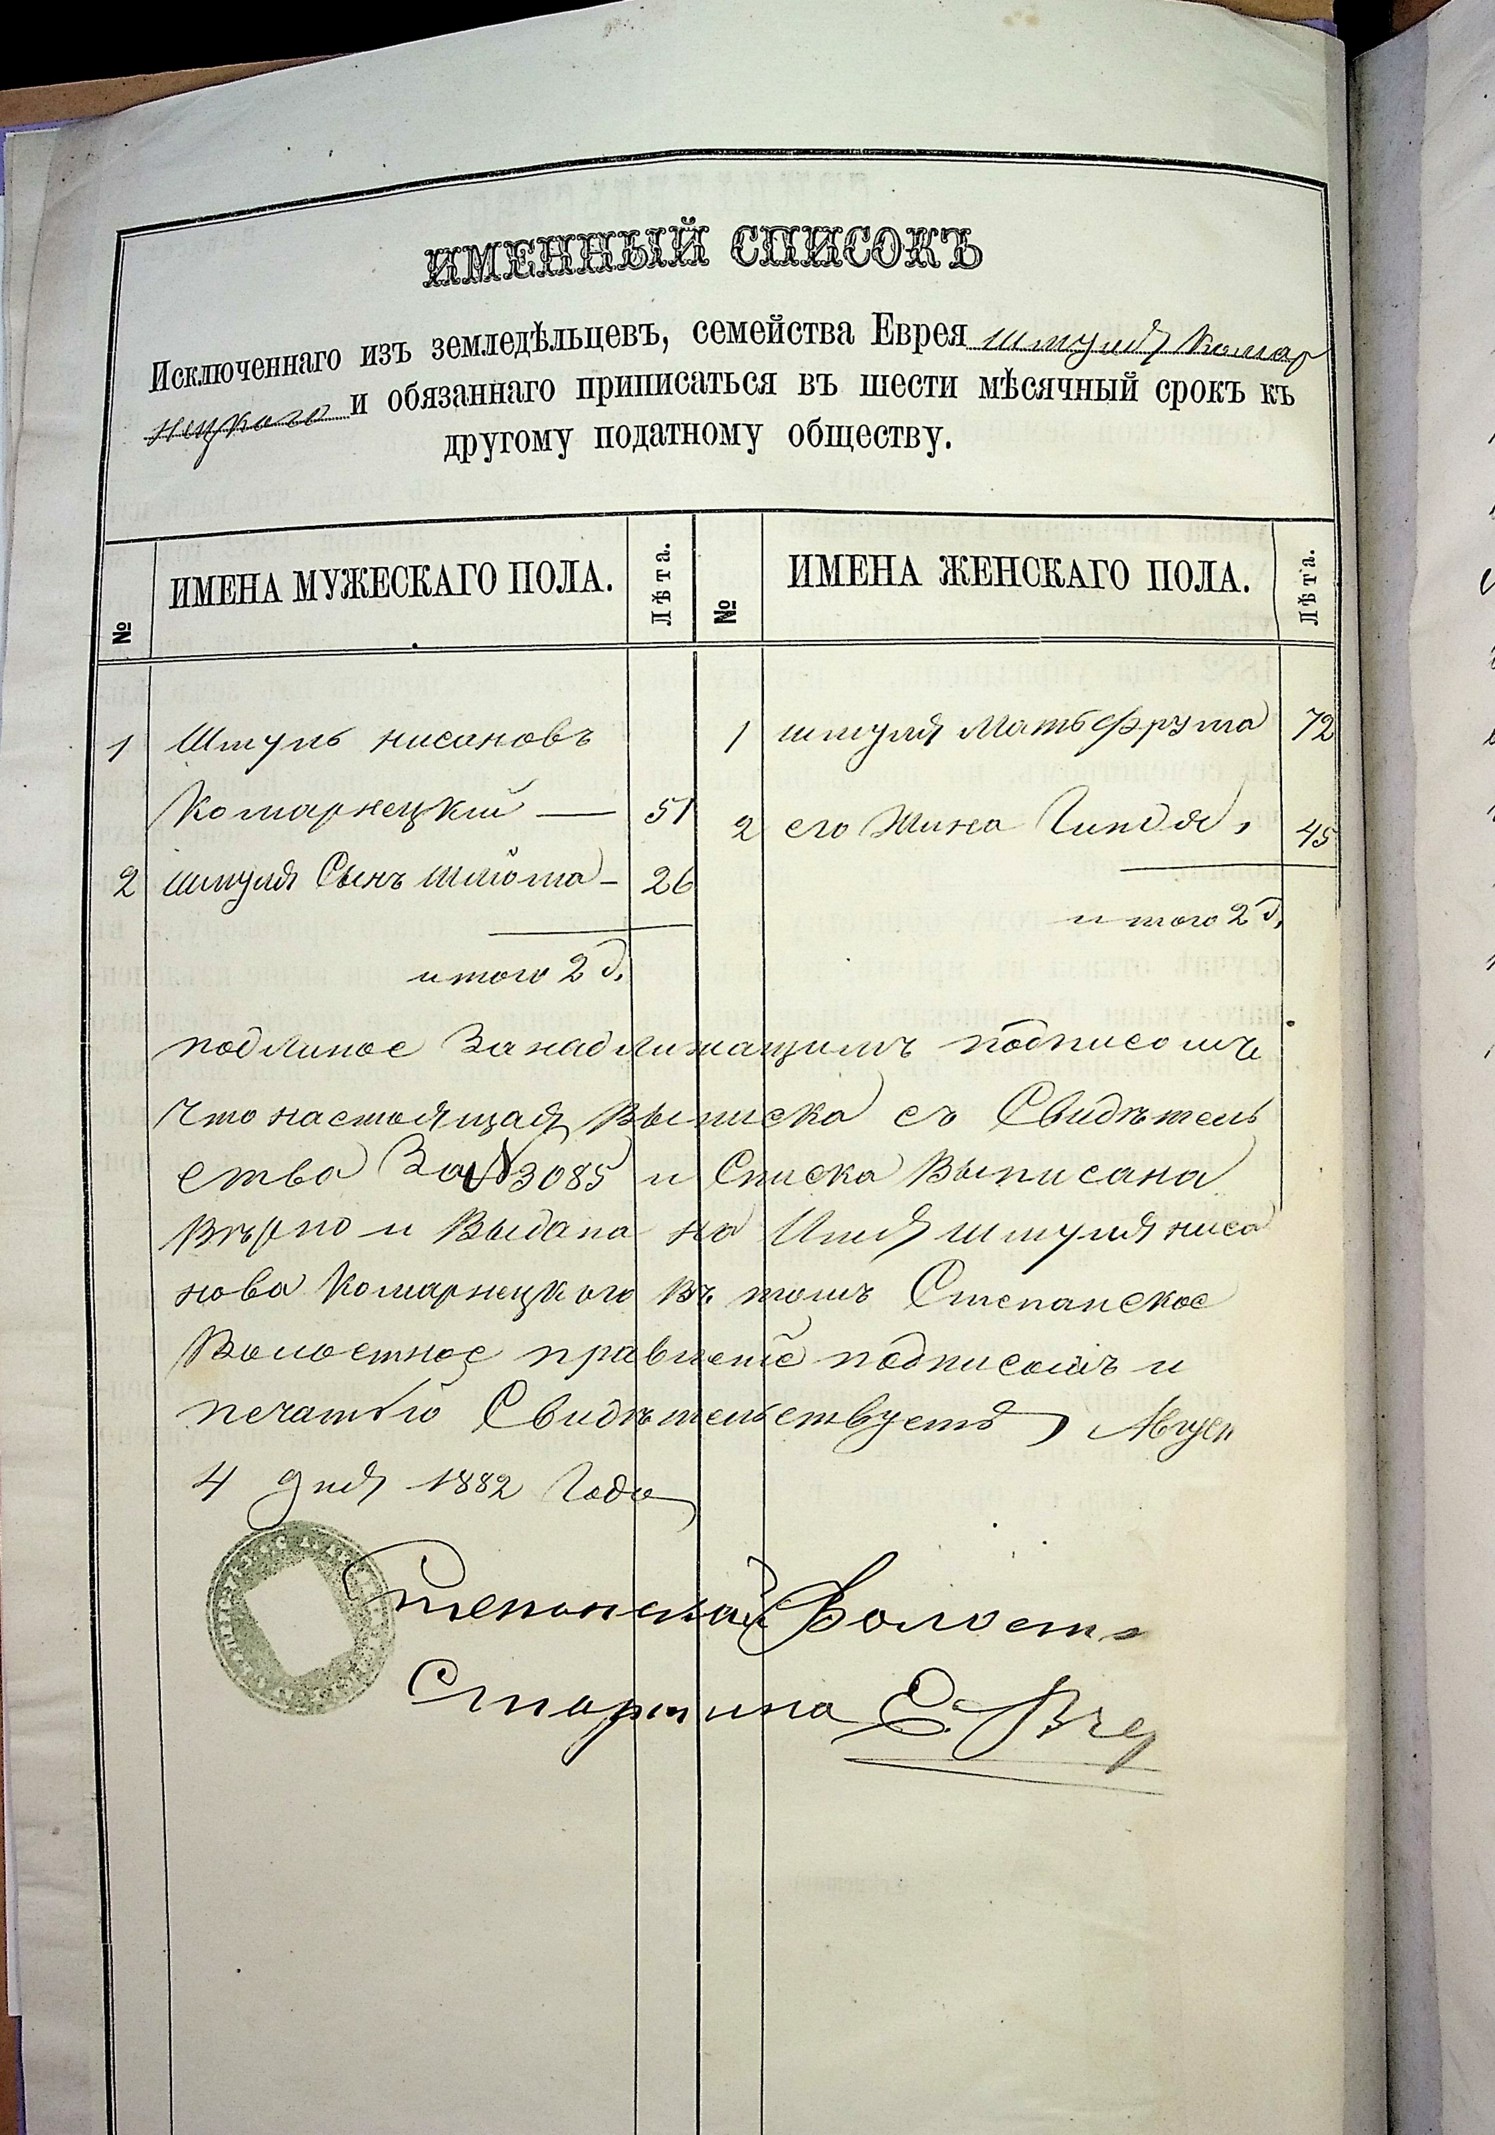 ИМЕННЫЙ СПИСОКЪ
Исключеннаго изъ земледѣльцевъ, семейства Еврея Шмуля Комар
нецкаго и обязаннаго приписаться въ шести мѣсячный срокъ къ
другому податному обществу.
№ ИМЕНА МУЖЕСКАГО ПОЛА. Лѣта. № ИМЕНА ЖЕНСКАГО ПОЛА. Лѣта.
1 Шмуль нисановъ
Комарнецкій — 51
2 шмуля Сынъ — 26
итого 2 д.
1 шмуля Мать Фрума 72
2 его Жина Гиндя, 45
итого 2 д.
подлиное За надлижащимъ подписомъ
что настоящая Выписка съ Свидѣтель
ства За № 3085 и Списка Выписана
Вѣрно и Выдана на Имя шмуля ниса
нова Комарнецкого Въ томъ Степанское
Волостное правленіе подписомъ и
печатью Свидѣтельствуетъ Август
4 дня 1882 Года
Степанскай Волостн
Старшина Е.